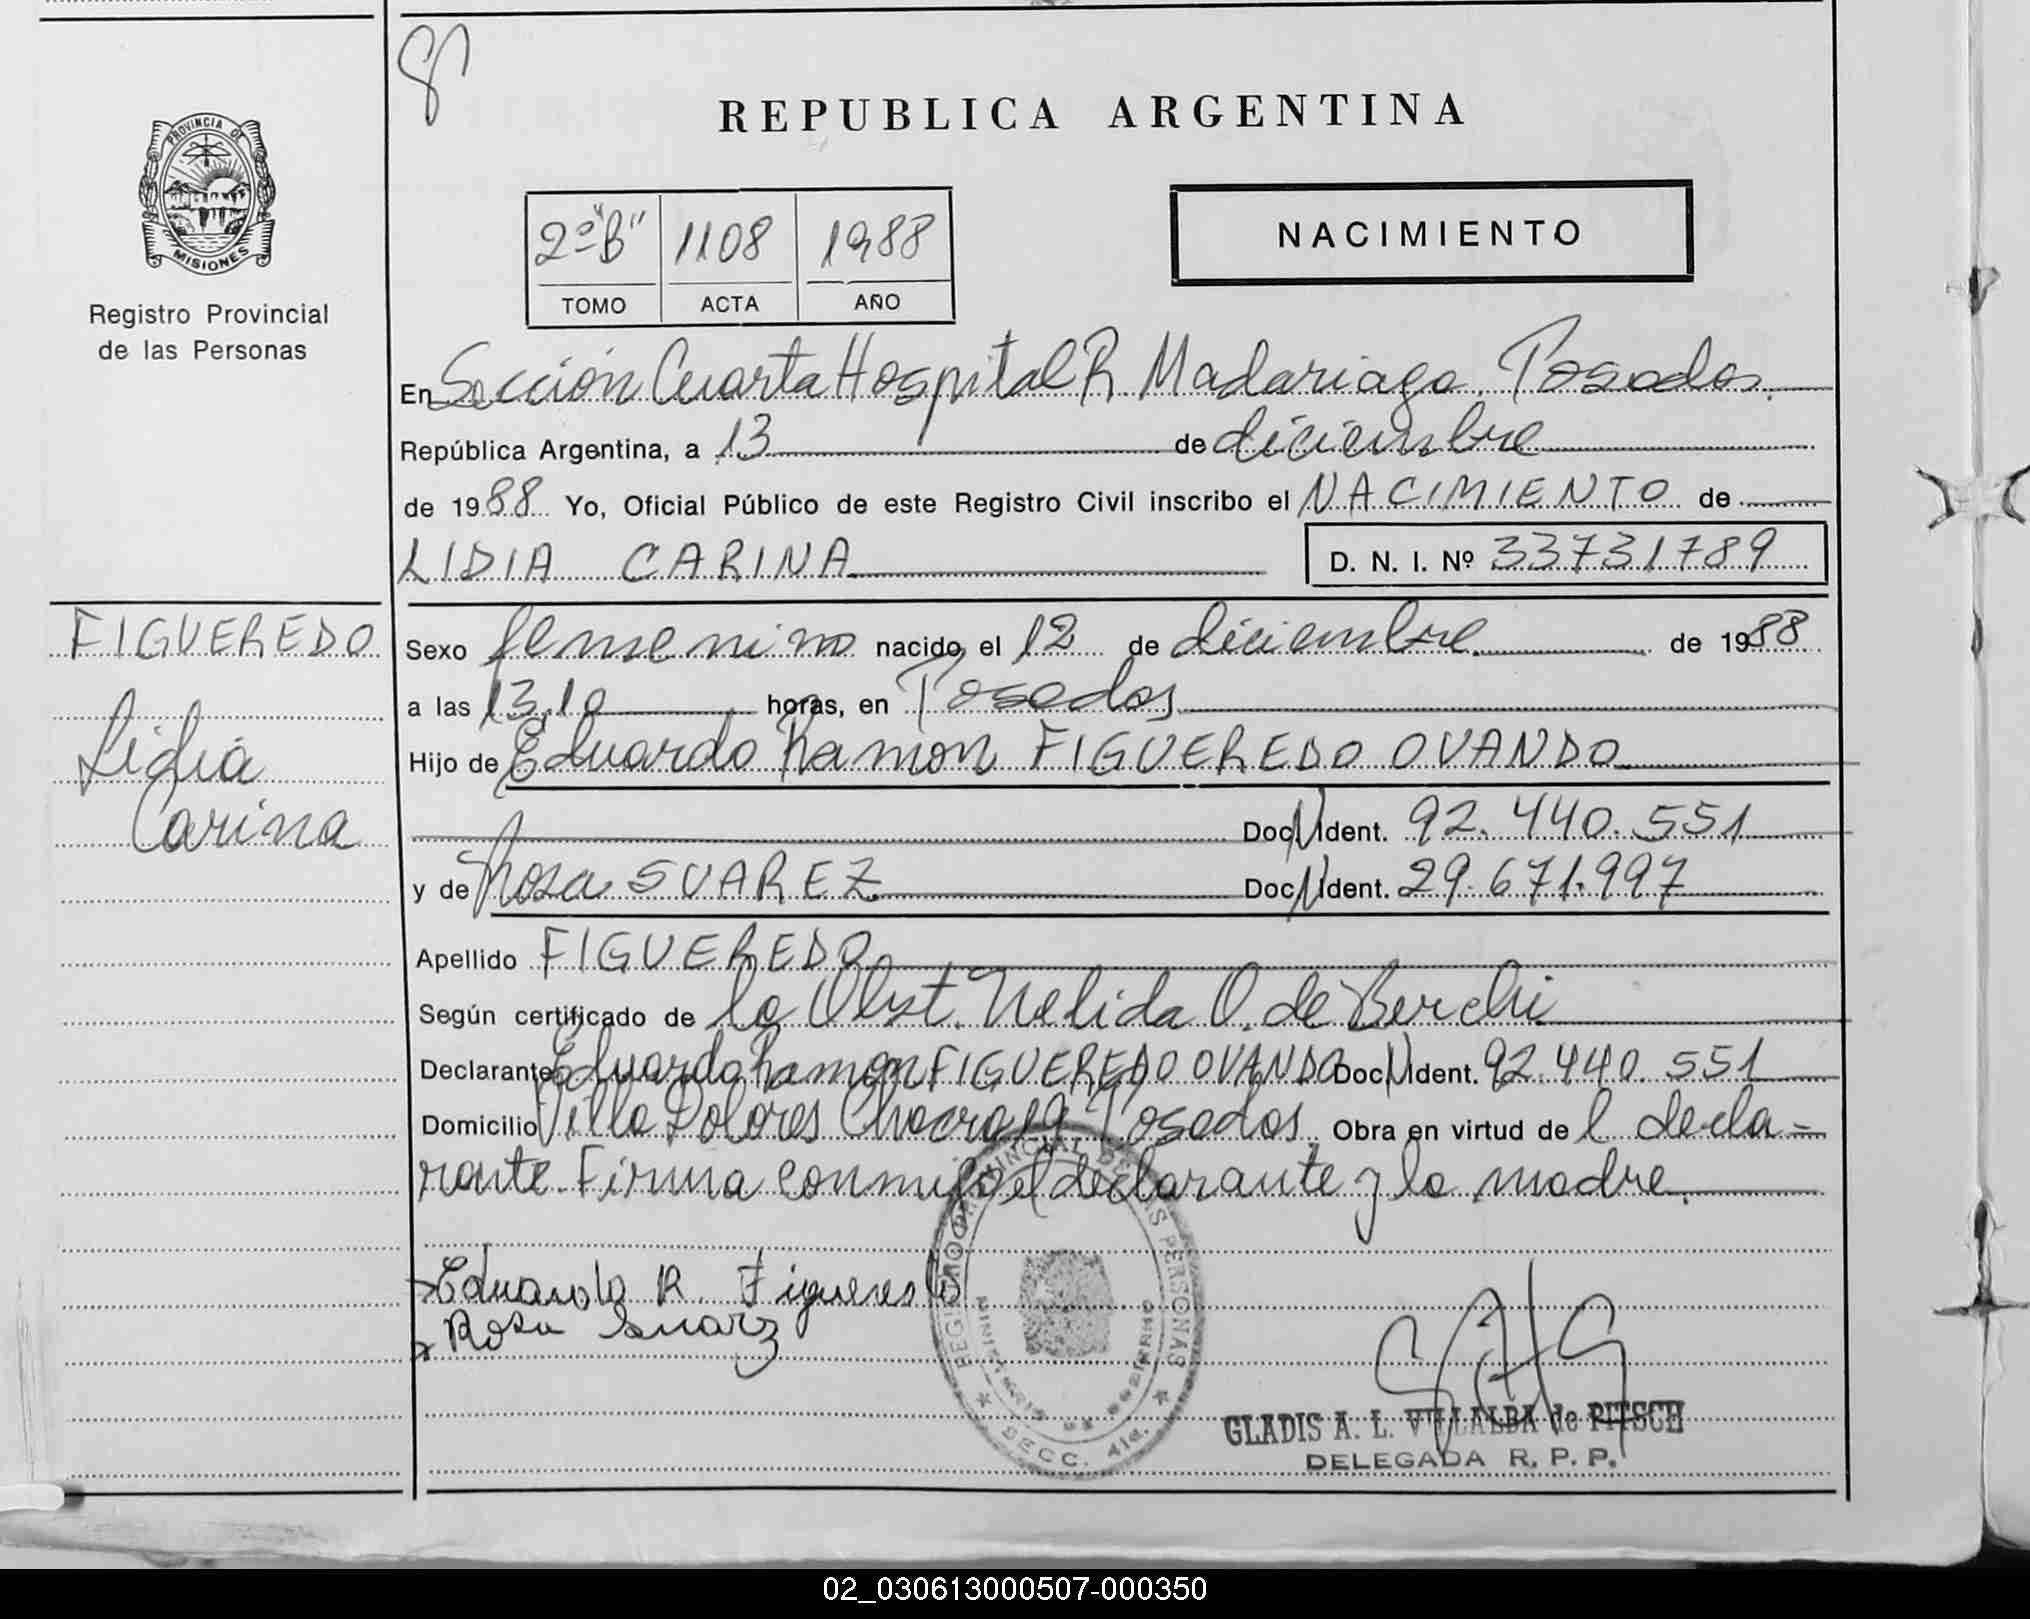 REPUBLICA ARGENTINA
PROVINCIA DE
MISIONES
Registro Provincial
de las Personas
2º "B" 1108 1988
TOMO ACTA AÑO
NACIMIENTO
En Sección Cuarta Hospital R. Madariaga. Posadas.
República Argentina, a 13 de diciembre
de 1988 Yo, Oficial Público de este Registro Civil inscribo el NACIMIENTO de
LIDIA CARINA D. N. I. Nº 33731789
FIGUEREDO
Lidia
Carina
Sexo femenino nacido el 12 de diciembre de 1988
a las 13,10 horas, en Posadas
Hijo de Eduardo Ramon FIGUEREDO OVANDO
Doc. N. Ident. 92.440.551
y de Rosa SUAREZ Doc. N. Ident. 29.671.997
Apellido FIGUEREDO
Según certificado de la Obst. Nelida O. de Berchi
Declarante Eduardo Ramon FIGUEREDO OVANDO Doc. N. Ident. 92.440.551
Domicilio Villa Dolores Chacra 19 Posadas. Obra en virtud de l decla-
rante. Firma conmigo el declarante y la madre.
Eduardo R. Figueredo
Rosa Suarz
REGISTRO PROVINCIAL DE LAS PERSONAS
MINISTERIO DE GOBIERNO
SECC. 4ta.
GLADIS A. L. VILLALBA de PITSCH
DELEGADA R. P. P.
02_030613000507-000350